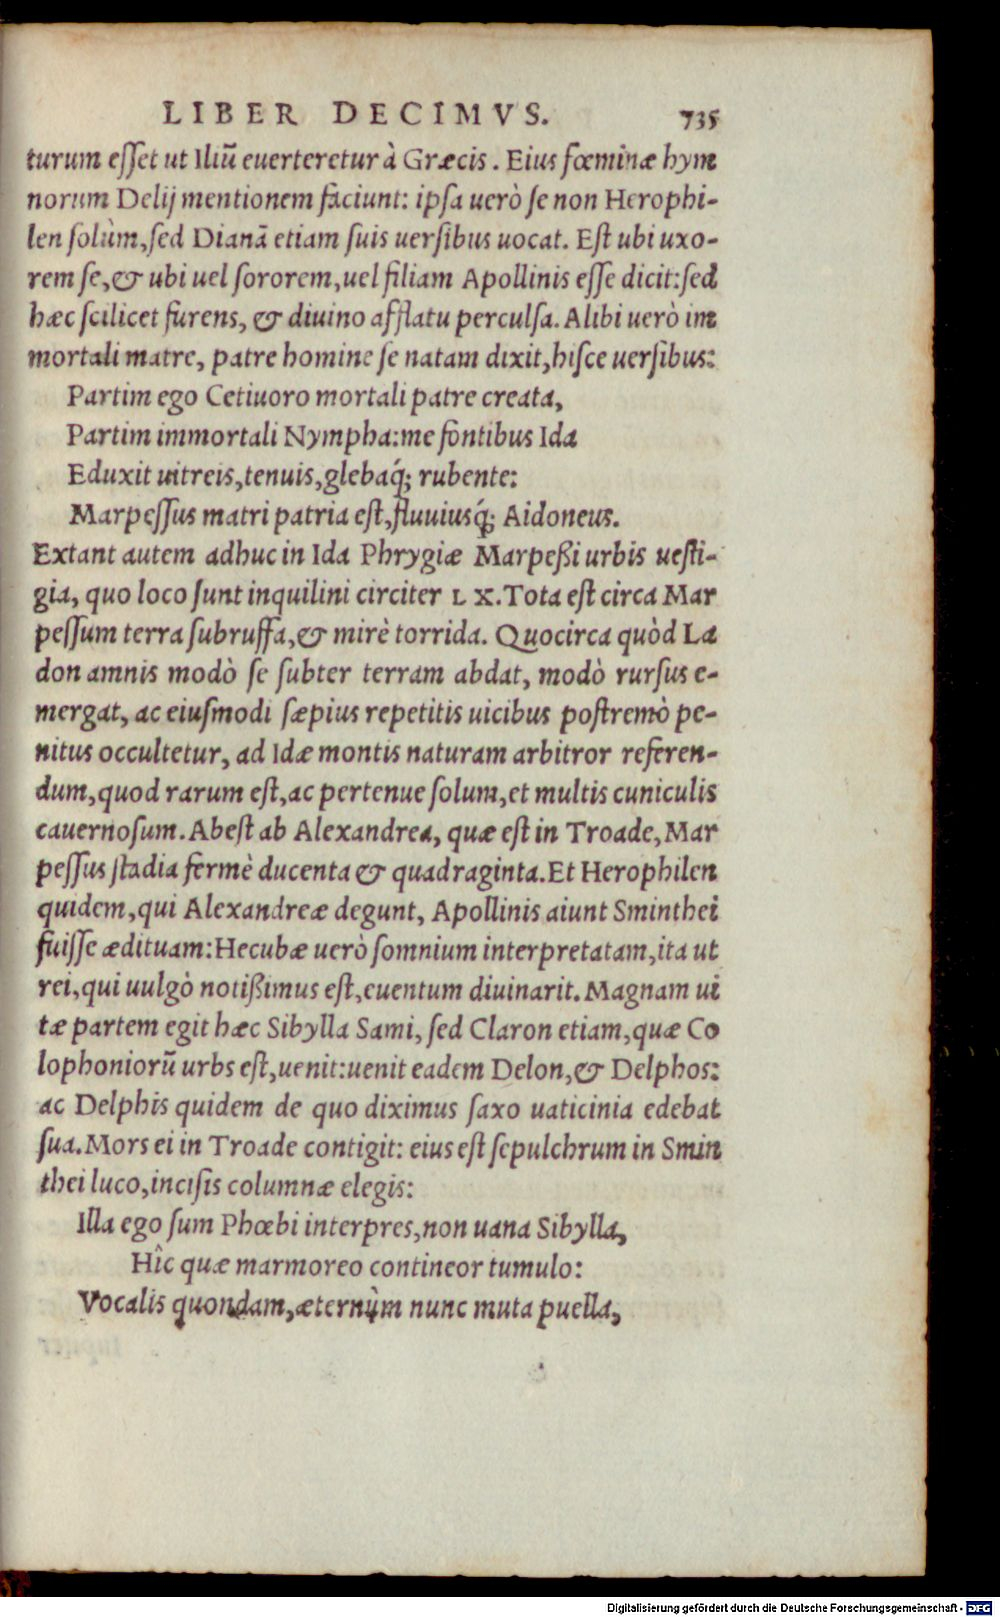 LIBER DECIMVS. 735
turum eſſet ut Iliũ euerteretur à Græcis. Eius fœminæ hym
norum Delij mentionem faciunt: ipſa uerò ſe non Herophi-
len ſolùm, ſed Dianã etiam ſuis uerſibus uocat. Eſt ubi uxo-
rem ſe, & ubi uel ſororem, uel filiam Apollinis eſſe dicit: ſed
hæc ſcilicet furens, & diuino afflatu perculſa. Alibi uerò im
mortali matre, patre homine ſe natam dixit, hiſce uerſibus:
Partim ego Cetiuoro mortali patre creata,
Partim immortali Nympha: me fontibus Ida
Eduxit uitreis, tenuis, glebaq́; rubente:
Marpeſſus matri patria eſt, fluuiusq́; Aidoneus.
Extant autem adhuc in Ida Phrygiæ Marpeßi urbis ueſti-
gia, quo loco ſunt inquilini circiter LX. Tota eſt circa Mar
peſſum terra ſubruffa, & mirè torrida. Quocirca quòd La
don amnis modò ſe ſubter terram abdat, modò rurſus e-
mergat, ac eiuſmodi ſæpius repetitis uicibus poſtremò pe-
nitus occultetur, ad Idæ montis naturam arbitror referen-
dum, quod rarum eſt, ac pertenue ſolum, et multis cuniculis
cauernoſum. Abeſt ab Alexandrea, quæ eſt in Troade, Mar
peſſus ſtadia fermè ducenta & quadraginta. Et Herophilen
quidem, qui Alexandreæ degunt, Apollinis aiunt Sminthei
fuiſſe ædituam: Hecubæ uerò ſomnium interpretatam, ita ut
rei, qui uulgò notißimus eſt, euentum diuinarit. Magnam ui
tæ partem egit hæc Sibylla Sami, ſed Claron etiam, quæ Co
lophoniorũ urbs eſt, uenit: uenit eadem Delon, & Delphos:
ac Delphis quidem de quo diximus ſaxo uaticinia edebat
ſua. Mors ei in Troade contigit: eius eſt ſepulchrum in Smin
thei luco, inciſis columnæ elegis:
Illa ego ſum Phœbi interpres, non uana Sibylla,
Hîc quæ marmoreo contineor tumulo:
Vocalis quondam, æternùm nunc muta puella,
Digitalisierung gefördert durch die Deutsche Forschungsgemeinschaft - DFG